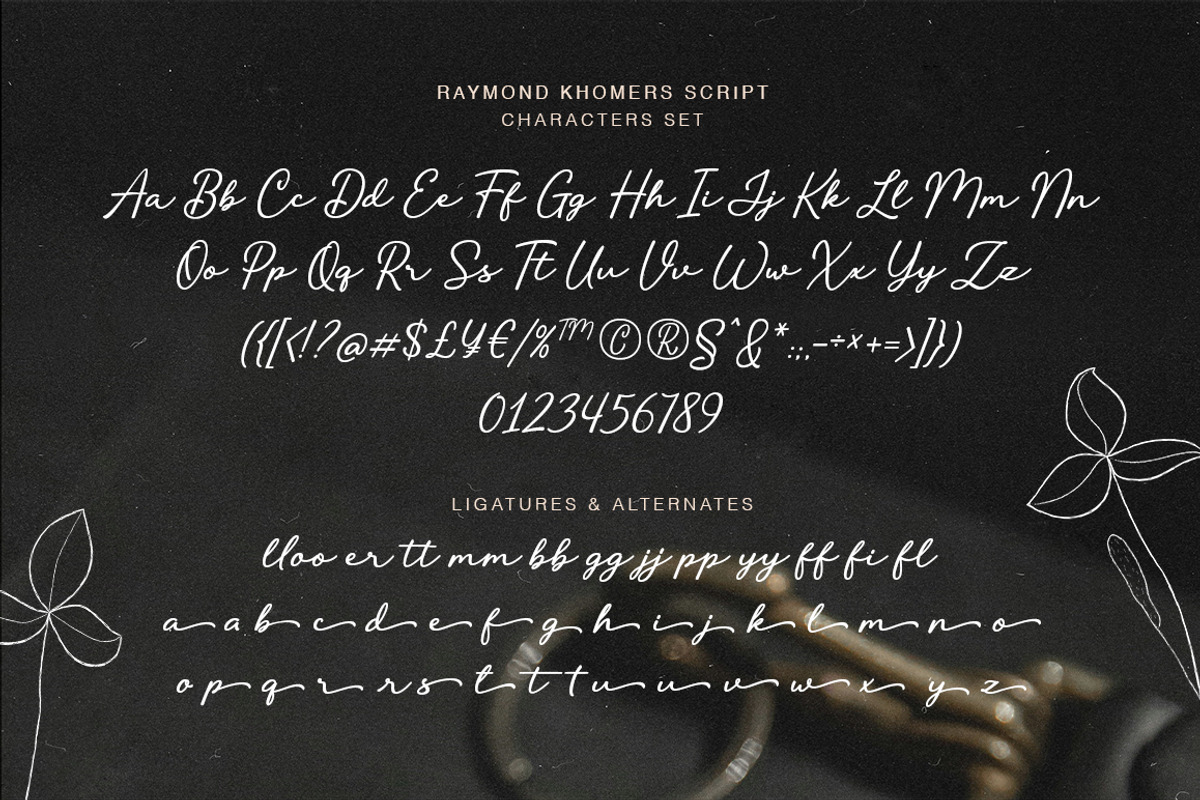 RAYMOND KHOMERS SCRIPT
CHARACTERS SET
Aa Bb Cc Dd Ee Ff Gg Hh Ii Jj Kk Ll Mm Nn
Oo Pp Qq Rr Ss Tt Uu Vv Ww Xx Yy Zz
({[<!?@#$£¥€/%™©®§^&*.:;,-÷×+=>]})
0123456789
LIGATURES & ALTERNATES
ll oo er tt mm bb gg jj pp yy ff fi fl
a a b c d e f g h i j k l m n o
o p q r r s t t t u u v w x y z